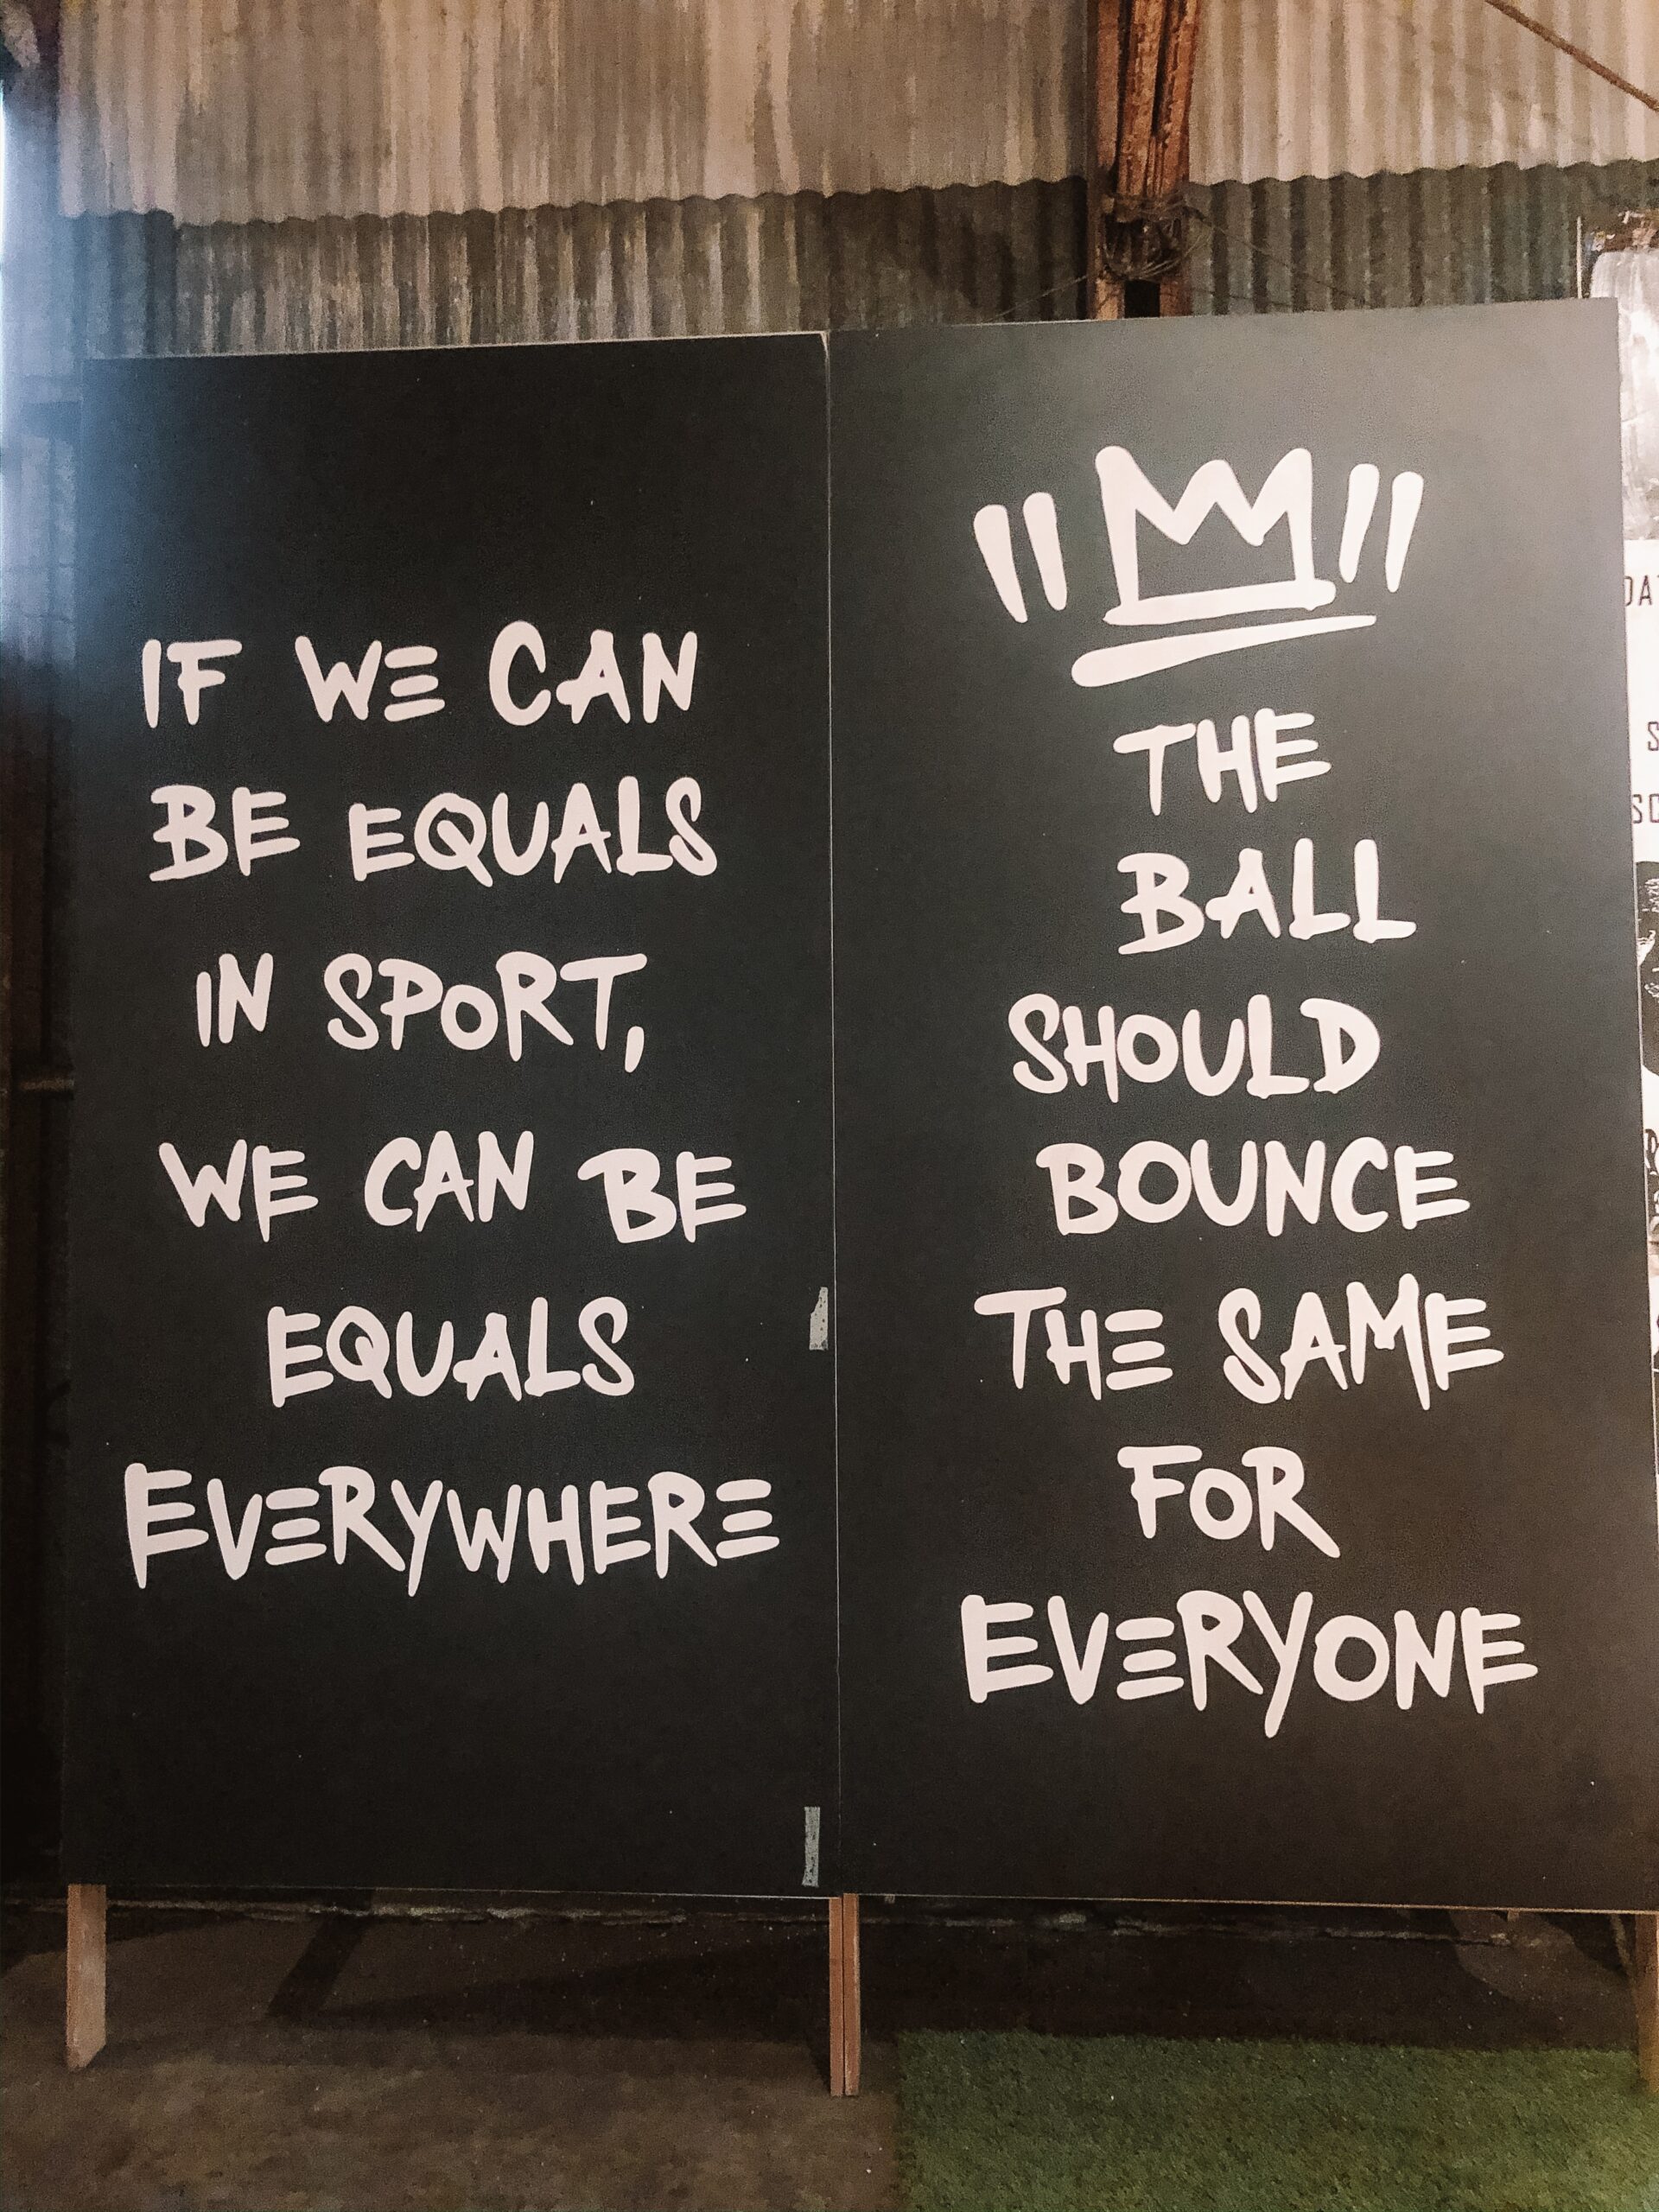 IF WE CAN
BE EQUALS
IN SPORT,
WE CAN BE
EQUALS
EVERYWHERE
THE
BALL
SHOULD
BOUNCE
THE SAME
FOR
EVERYONE